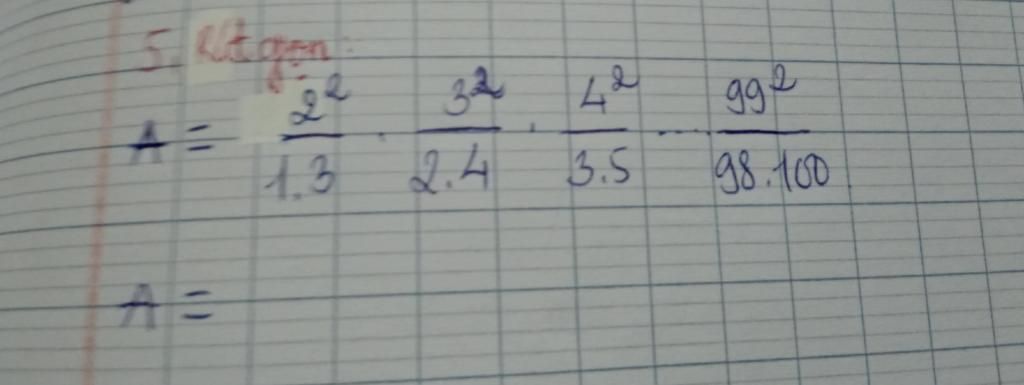 5. Rút gọn:
A = 2²/1.3 . 3²/2.4 . 4²/3.5 ... 99²/98.100
A =